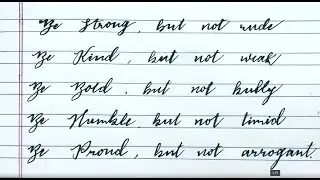 Be Strong, but not rude
Be Kind, but not weak
Be Bold, but not bully
Be Humble, but not timid
Be Proud, but not arrogant.